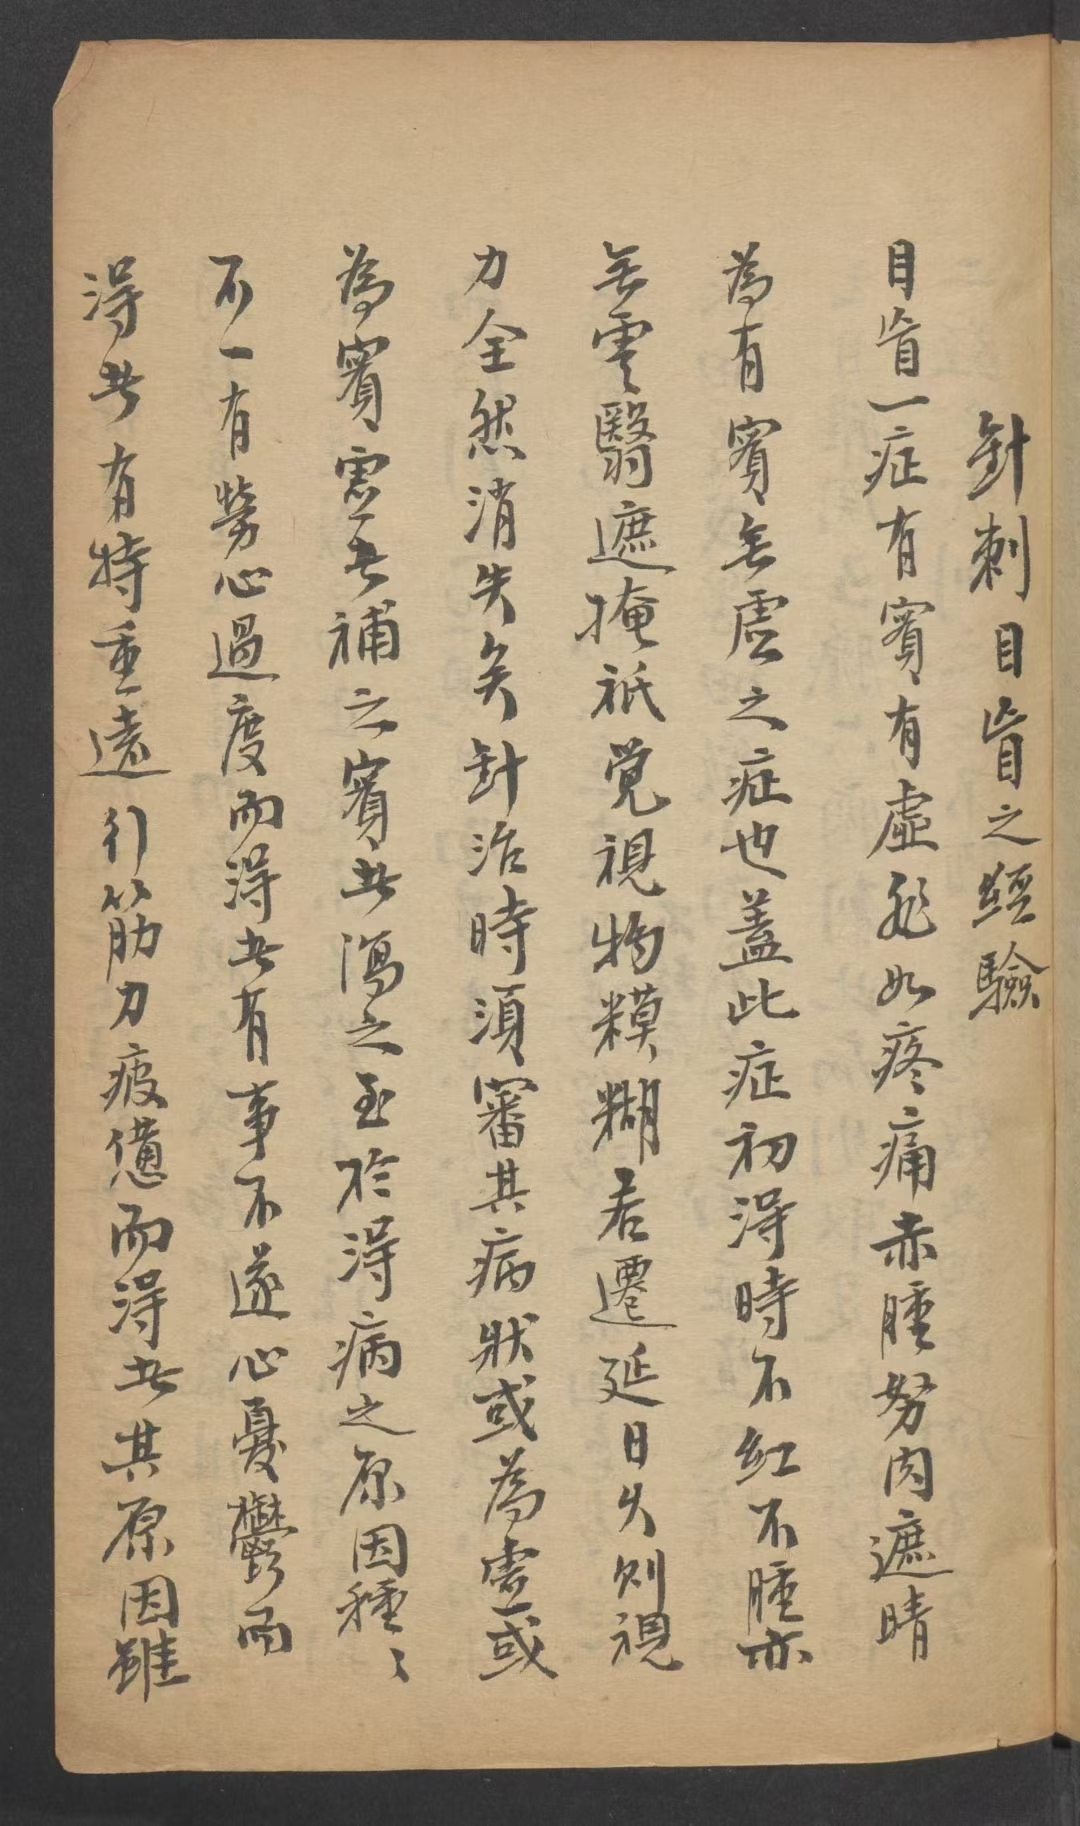 針刺目盲之經驗
目盲一症有實有虛形如疼痛赤腫努肉遮睛
為有實無虛之症也蓋此症初得時不紅不腫亦
無雲翳遮掩祇覚視物糢糊若遷延日久則視
力全然消失矣針治時須審其病狀或為虛或
為實虛者補之實者瀉之至於得病之原因種〻
不一有勞心過度而得者有事不遂心憂鬱而
得者有持重遠行筋力疲憊而得者其原因雖